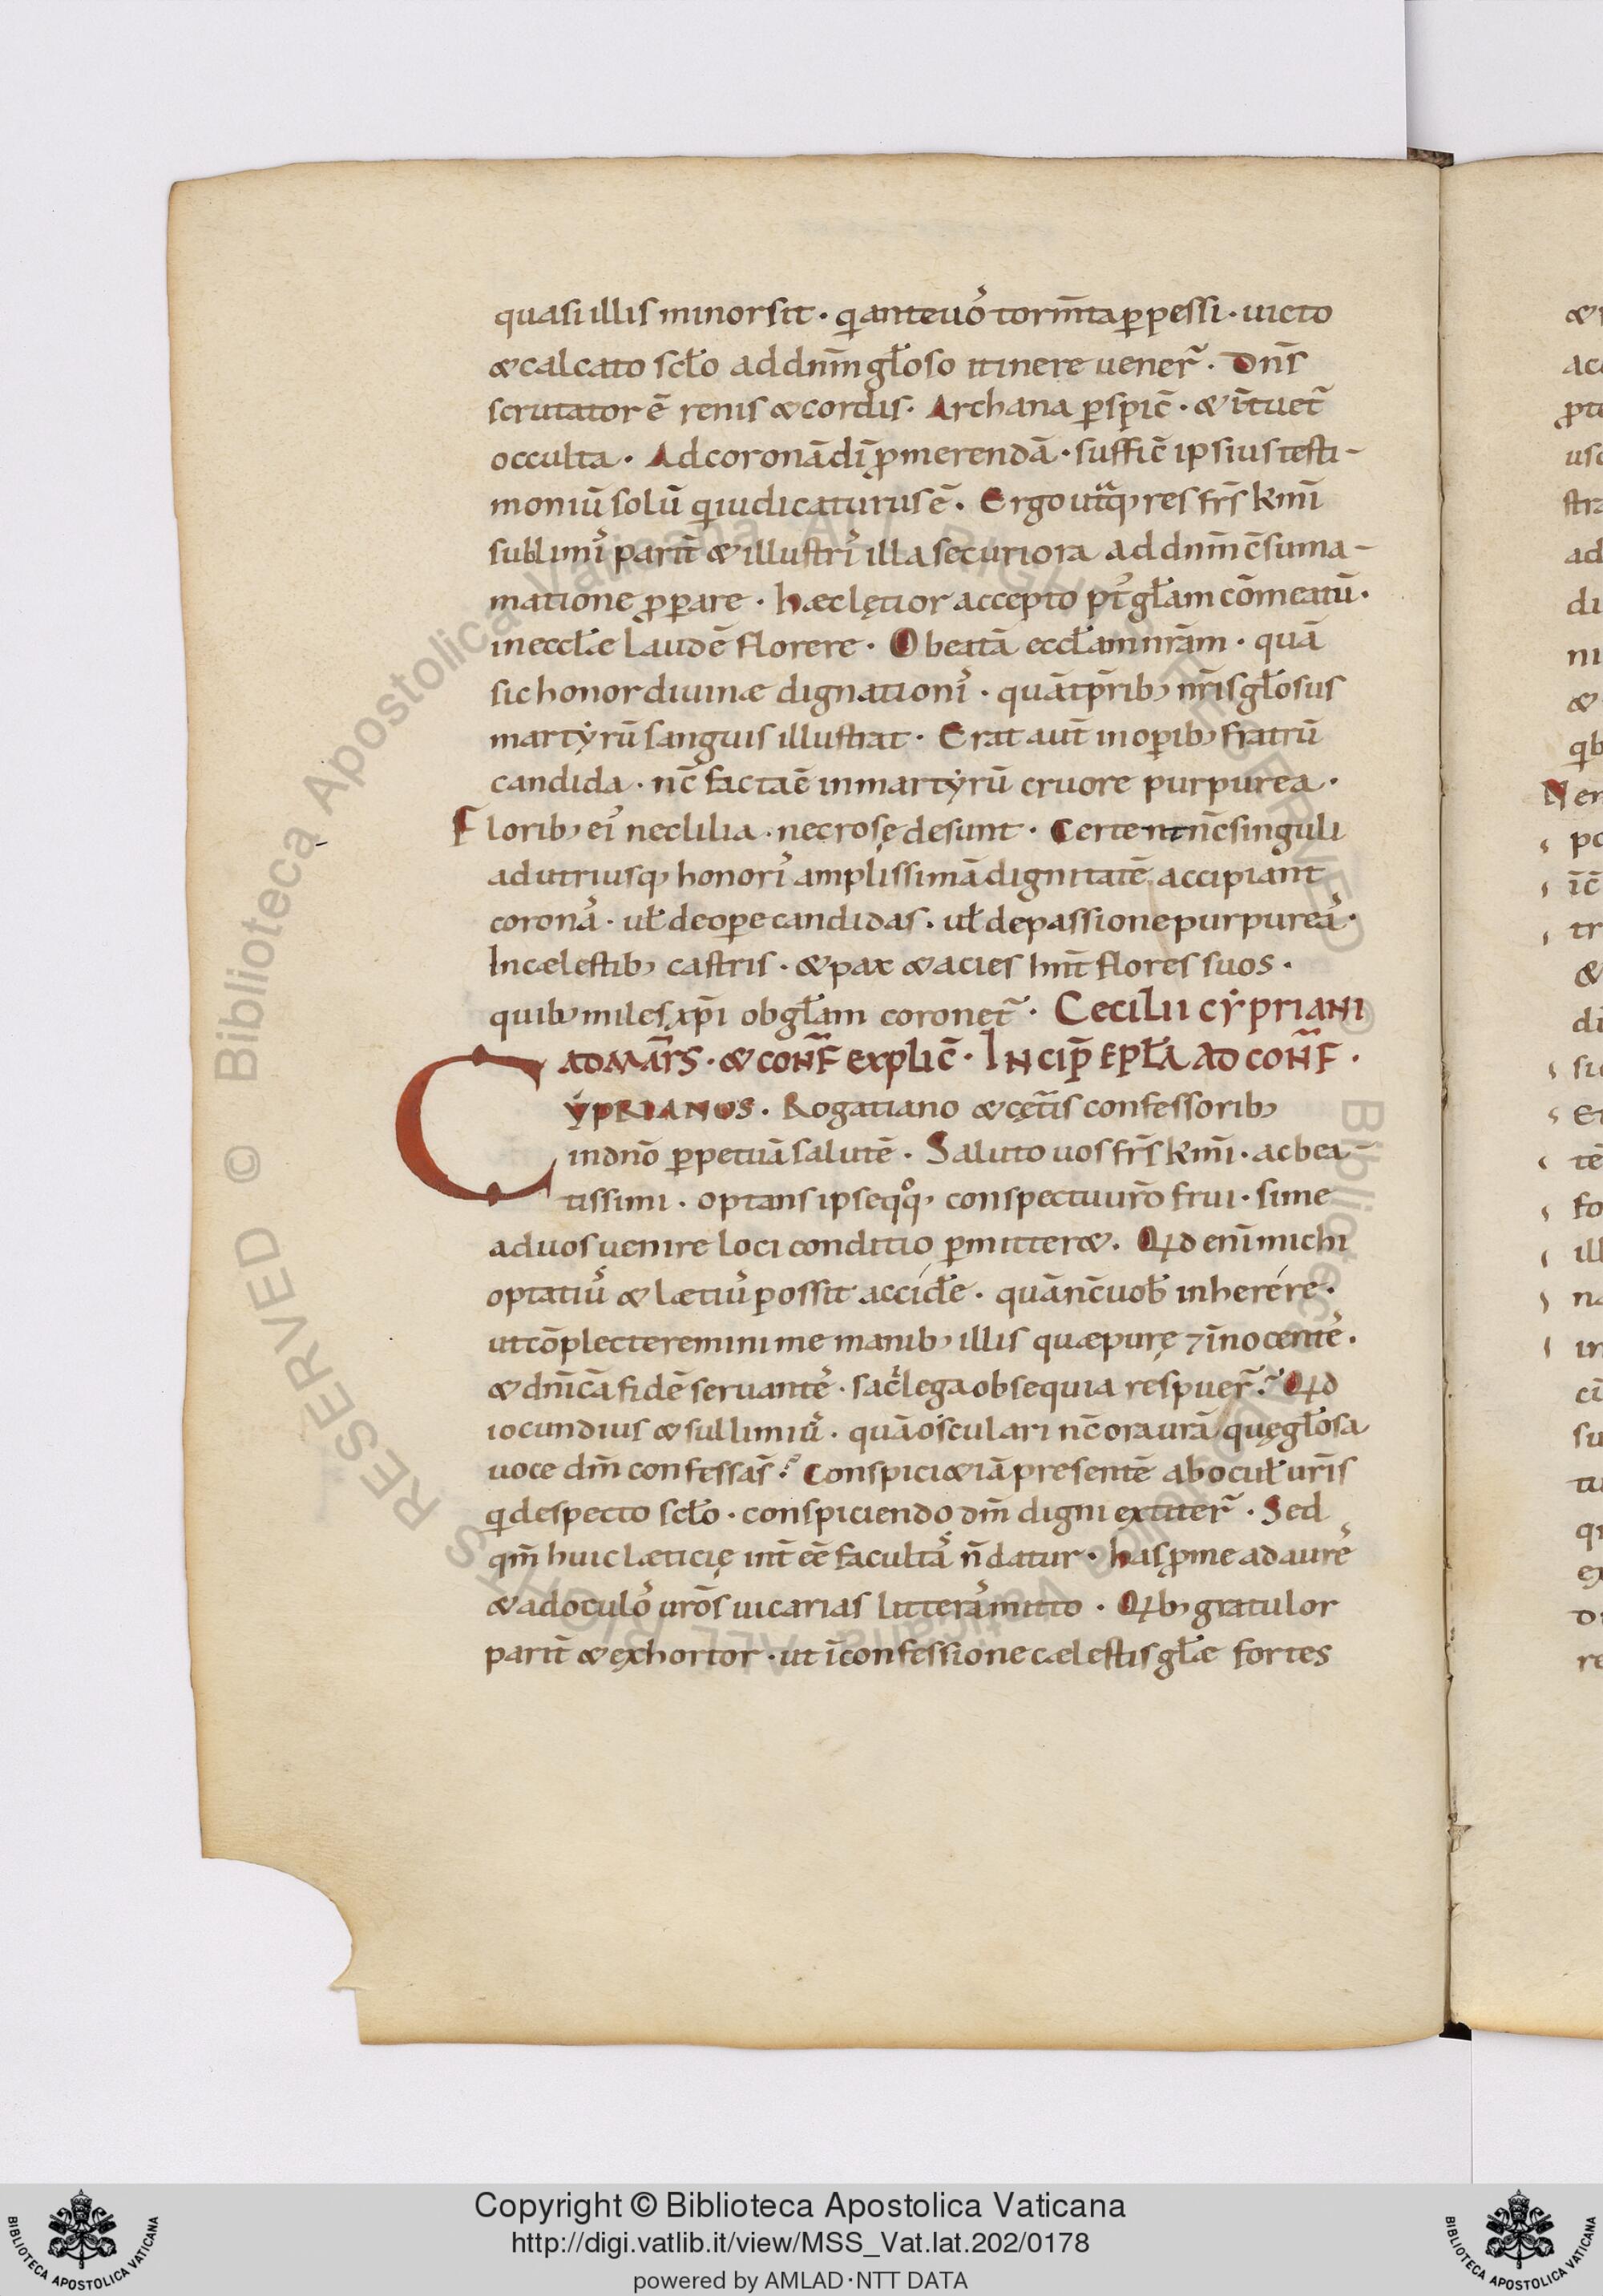 quasi illis minor sit · q̄ ante uoˀ torm̄ta ꝑpessi · uicto
& calcato scl̄o ad dnm̄ gl̄oso itinere uener̄ · Dn̄s
scrutator ē renis & cordis · Archana ꝑspic̄ · & ītuet̄
occulta · Ad coronā dī ꝓmerendā · suffic̄ ipsius testi-
moniū solū q̄ iudicaturus ē · Ergo utᵃq; res fr̄s km̄i
sublimiˀ parit̄ & illustriˀ illa securior a ad dnm̄ c̄suma-
matione ꝓꝑare · hæc lętior accepto pˀt gl̄am cōmeatū ·
in eccl̄æ laudē florere · O beatā eccl̄am nr̄am · quā
sic honor diuinæ dignationiˀ · quā tp̄rib; nr̄is gl̄osus
martẏrū sanguis illustrat · Erat aut̄ in oꝑib; fratrū
candida · nc̄ facta ē in martẏrū cruore purpurea ·
Florib; eiˀ nec lilia · nec rosę desunt · Certent nc̄ singuli
ad utriusq; honoriˀ amplissimā dignitatē accipiant
coronaˀ · ul̄ de oꝑe candidas · ul̄ de passione purpureaˀ ·
In cælestib; castris · & pax & acies hn̄t flores suos ·
quib; miles xp̄i ob gl̄am coronet̄ · Cecilii cẏpriani
ad mar̄s · & conf̄ explic̄ · Incip̄ epl̄a ad conf̄ ·
Cẏprianus · Rogatiano & cęt̄is confessorib;
in dn̄o ꝑpetuā salutē · Saluto uos fr̄s km̄i · ac bea-
tissimi · optans ipse qͦq; conspectu ur̄o frui · si me
ad uos uenire loci conditio ꝑmitter& · Qd enī michi
optatiuˀ & lætiuˀ possit accid̄e · quā nc̄ uob̄ inherére ·
ut cōplecteremini me manib; illis quæ purę ⁊ īnocenteˀ ·
& dn̄icā fidē seruanteˀ · sacˡlega obsequia respuer̄ · Qd
iocundius & sullimiuˀ · quā osculari nc̄ ora ur̄a quę gl̄osa
uoce dm̄ confessa s̄ · Conspici &iā presentē ab ocul̄ ur̄is
q̄ despecto scl̄o · conspiciendo dm̄ digni extiter̄ · Sed
qm̄ huic læticię int̄ eē facultaˀ n̄ datur · has ꝓ me ad aureˀ
& ad oculoˀ ur̄os uicarias litteraˀ mitto · Qb; gratulor
parit̄ & exhortor · ut ī confessione cælestis gl̄æ fortes
Copyright © Biblioteca Apostolica Vaticana
http://digi.vatlib.it/view/MSS_Vat.lat.202/0178
powered by AMLAD·NTT DATA